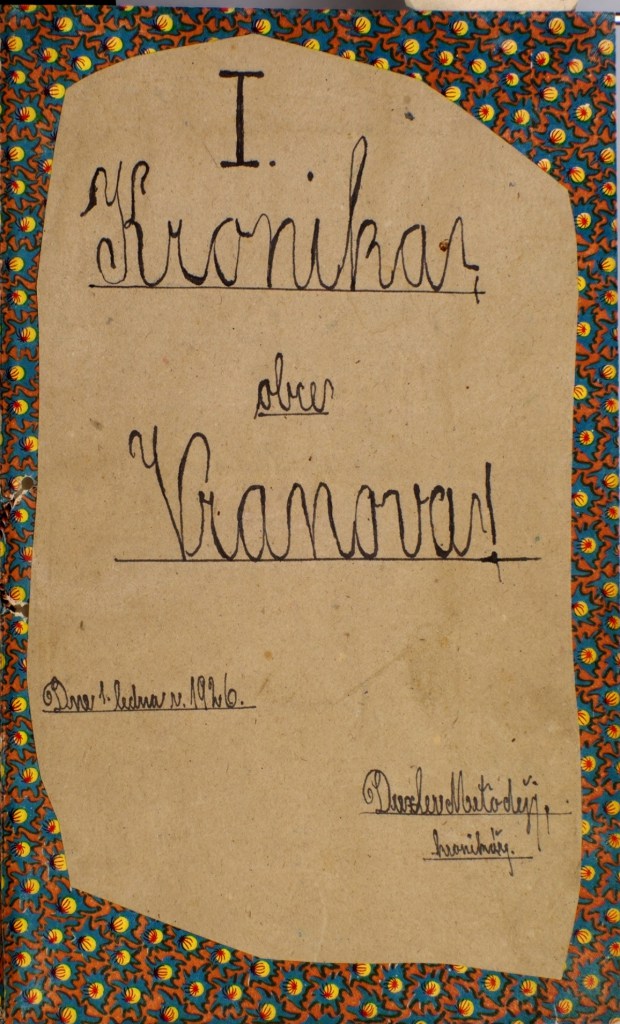 I.
Kronika,
obce
Vranova!
Dne 1. ledna r. 1926.
Metoděj,
kronikář.